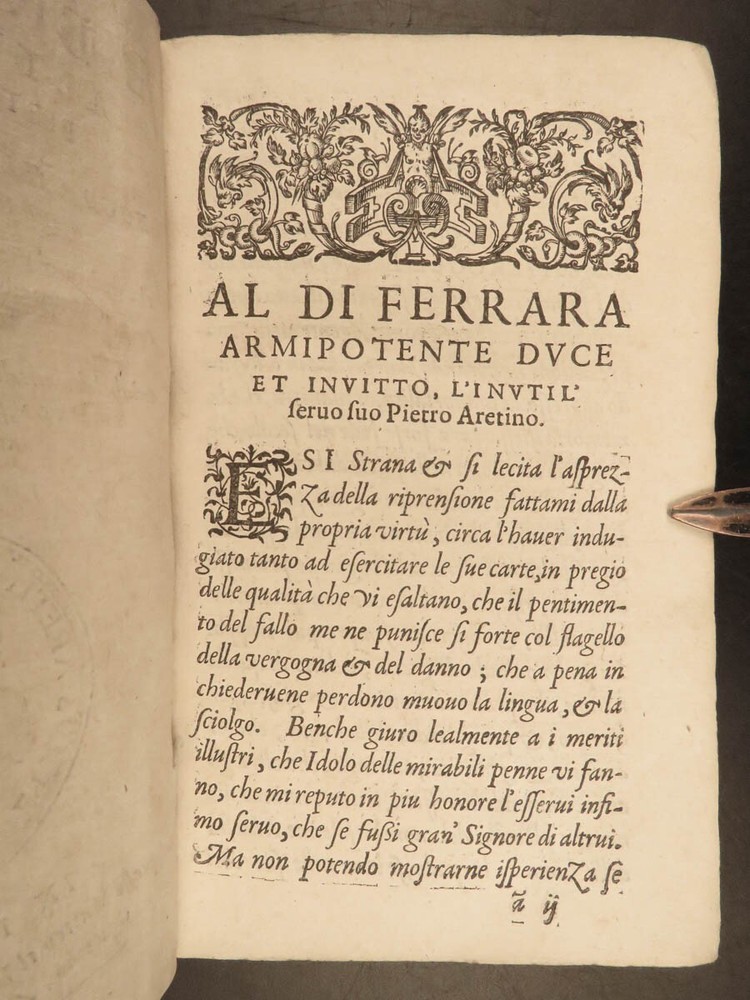 AL DI FERRARA
ARMIPOTENTE DVCE
ET INVITTO, L'INVTIL'
ſeruo ſuo Pietro Aretino.
E SI Strana & ſi lecita l'aſprez-
za della riprenſione fattami dalla
propria virtù, circa l'hauer indu-
giato tanto ad eſercitare le ſue carte, in pregio
delle qualità che vi eſaltano, che il pentimen-
to del fallo me ne puniſce ſi forte col flagello
della vergogna & del danno; che a pena in
chiederuene perdono muouo la lingua, & la
ſciolgo. Benche giuro lealmente a i meriti
illuſtri, che Idolo delle mirabili penne vi fan-
no, che mi reputo in piu honore l'eſſerui infi-
mo ſeruo, che ſe fuſſi gran' Signore di altrui.
Ma non potendo moſtrarne iſperienza ſe
ã ij